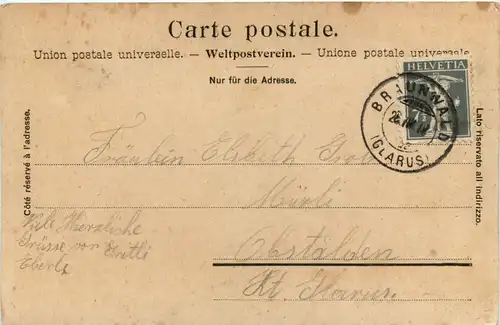 Carte postale.
Union postale universelle. – Weltpostverein. – Unione postale universale
Nur für die Adresse.
HELVETIA
BRAUNWALD
(GLARUS)
Côté réservé à l'adresse.
Lato riservato all indirizzo.
Fräulein Elsbeth
Mürli
Obstalden
Kt. Glarus.
Viele Herzliche
Grüsse von Gritli
Eberle